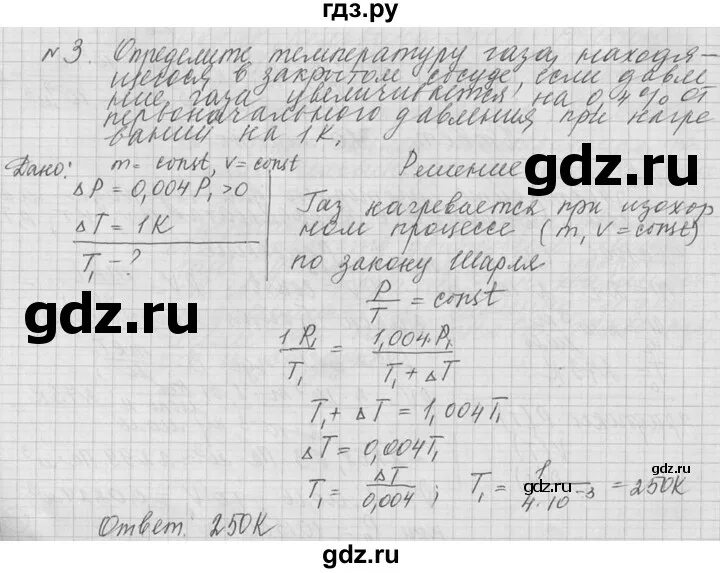 гдз.ру
№3. Определите температуру газа, находя-
щегося в закрытом сосуде, если давле-
ние газа увеличивается на 0,4% от
первоначального давления при нагре-
вании на 1К.
Дано: m = const, v = const
ΔP = 0,004P₁ > 0
ΔT = 1К
T₁ - ?
Решение
Газ нагревается при изохор-
ном процессе (m, V = const)
по закону Шарля
P/T = const
1P₁/T₁ = 1,004·P₁/(T₁ + ΔT)
T₁ + ΔT = 1,004T₁
ΔT = 0,004T₁
T₁ = ΔT/0,004 ; T₁ = 1/(4·10⁻³) = 250К
Ответ. 250К
gdz.ru
gdz.ru
gdz.ru
gdz.ru
gdz.ru